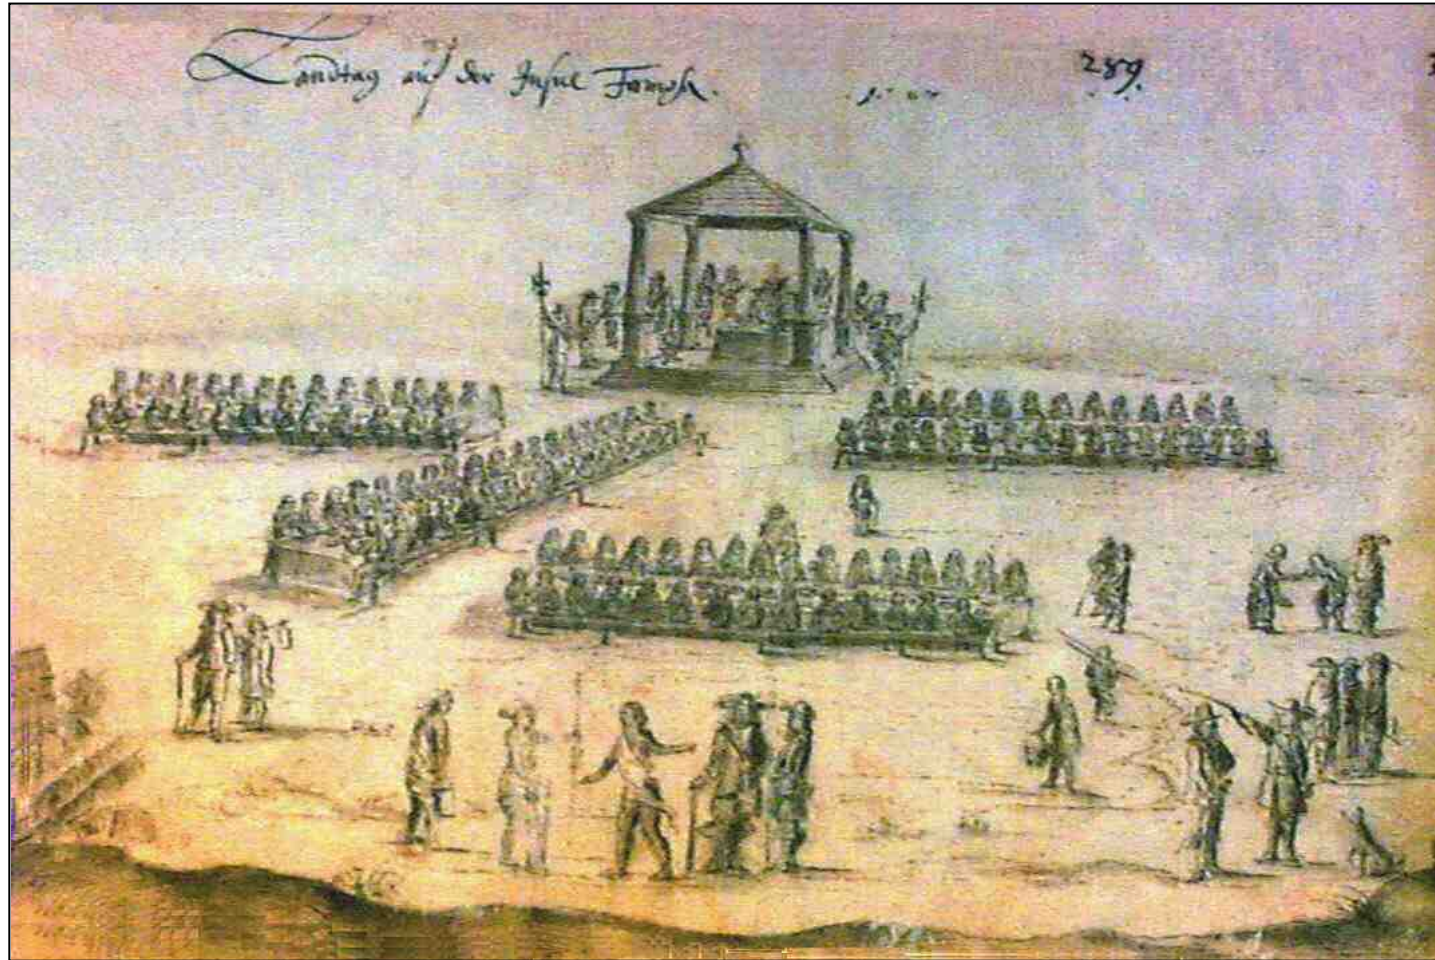 Landtag auf der Insul Formosa. 289.